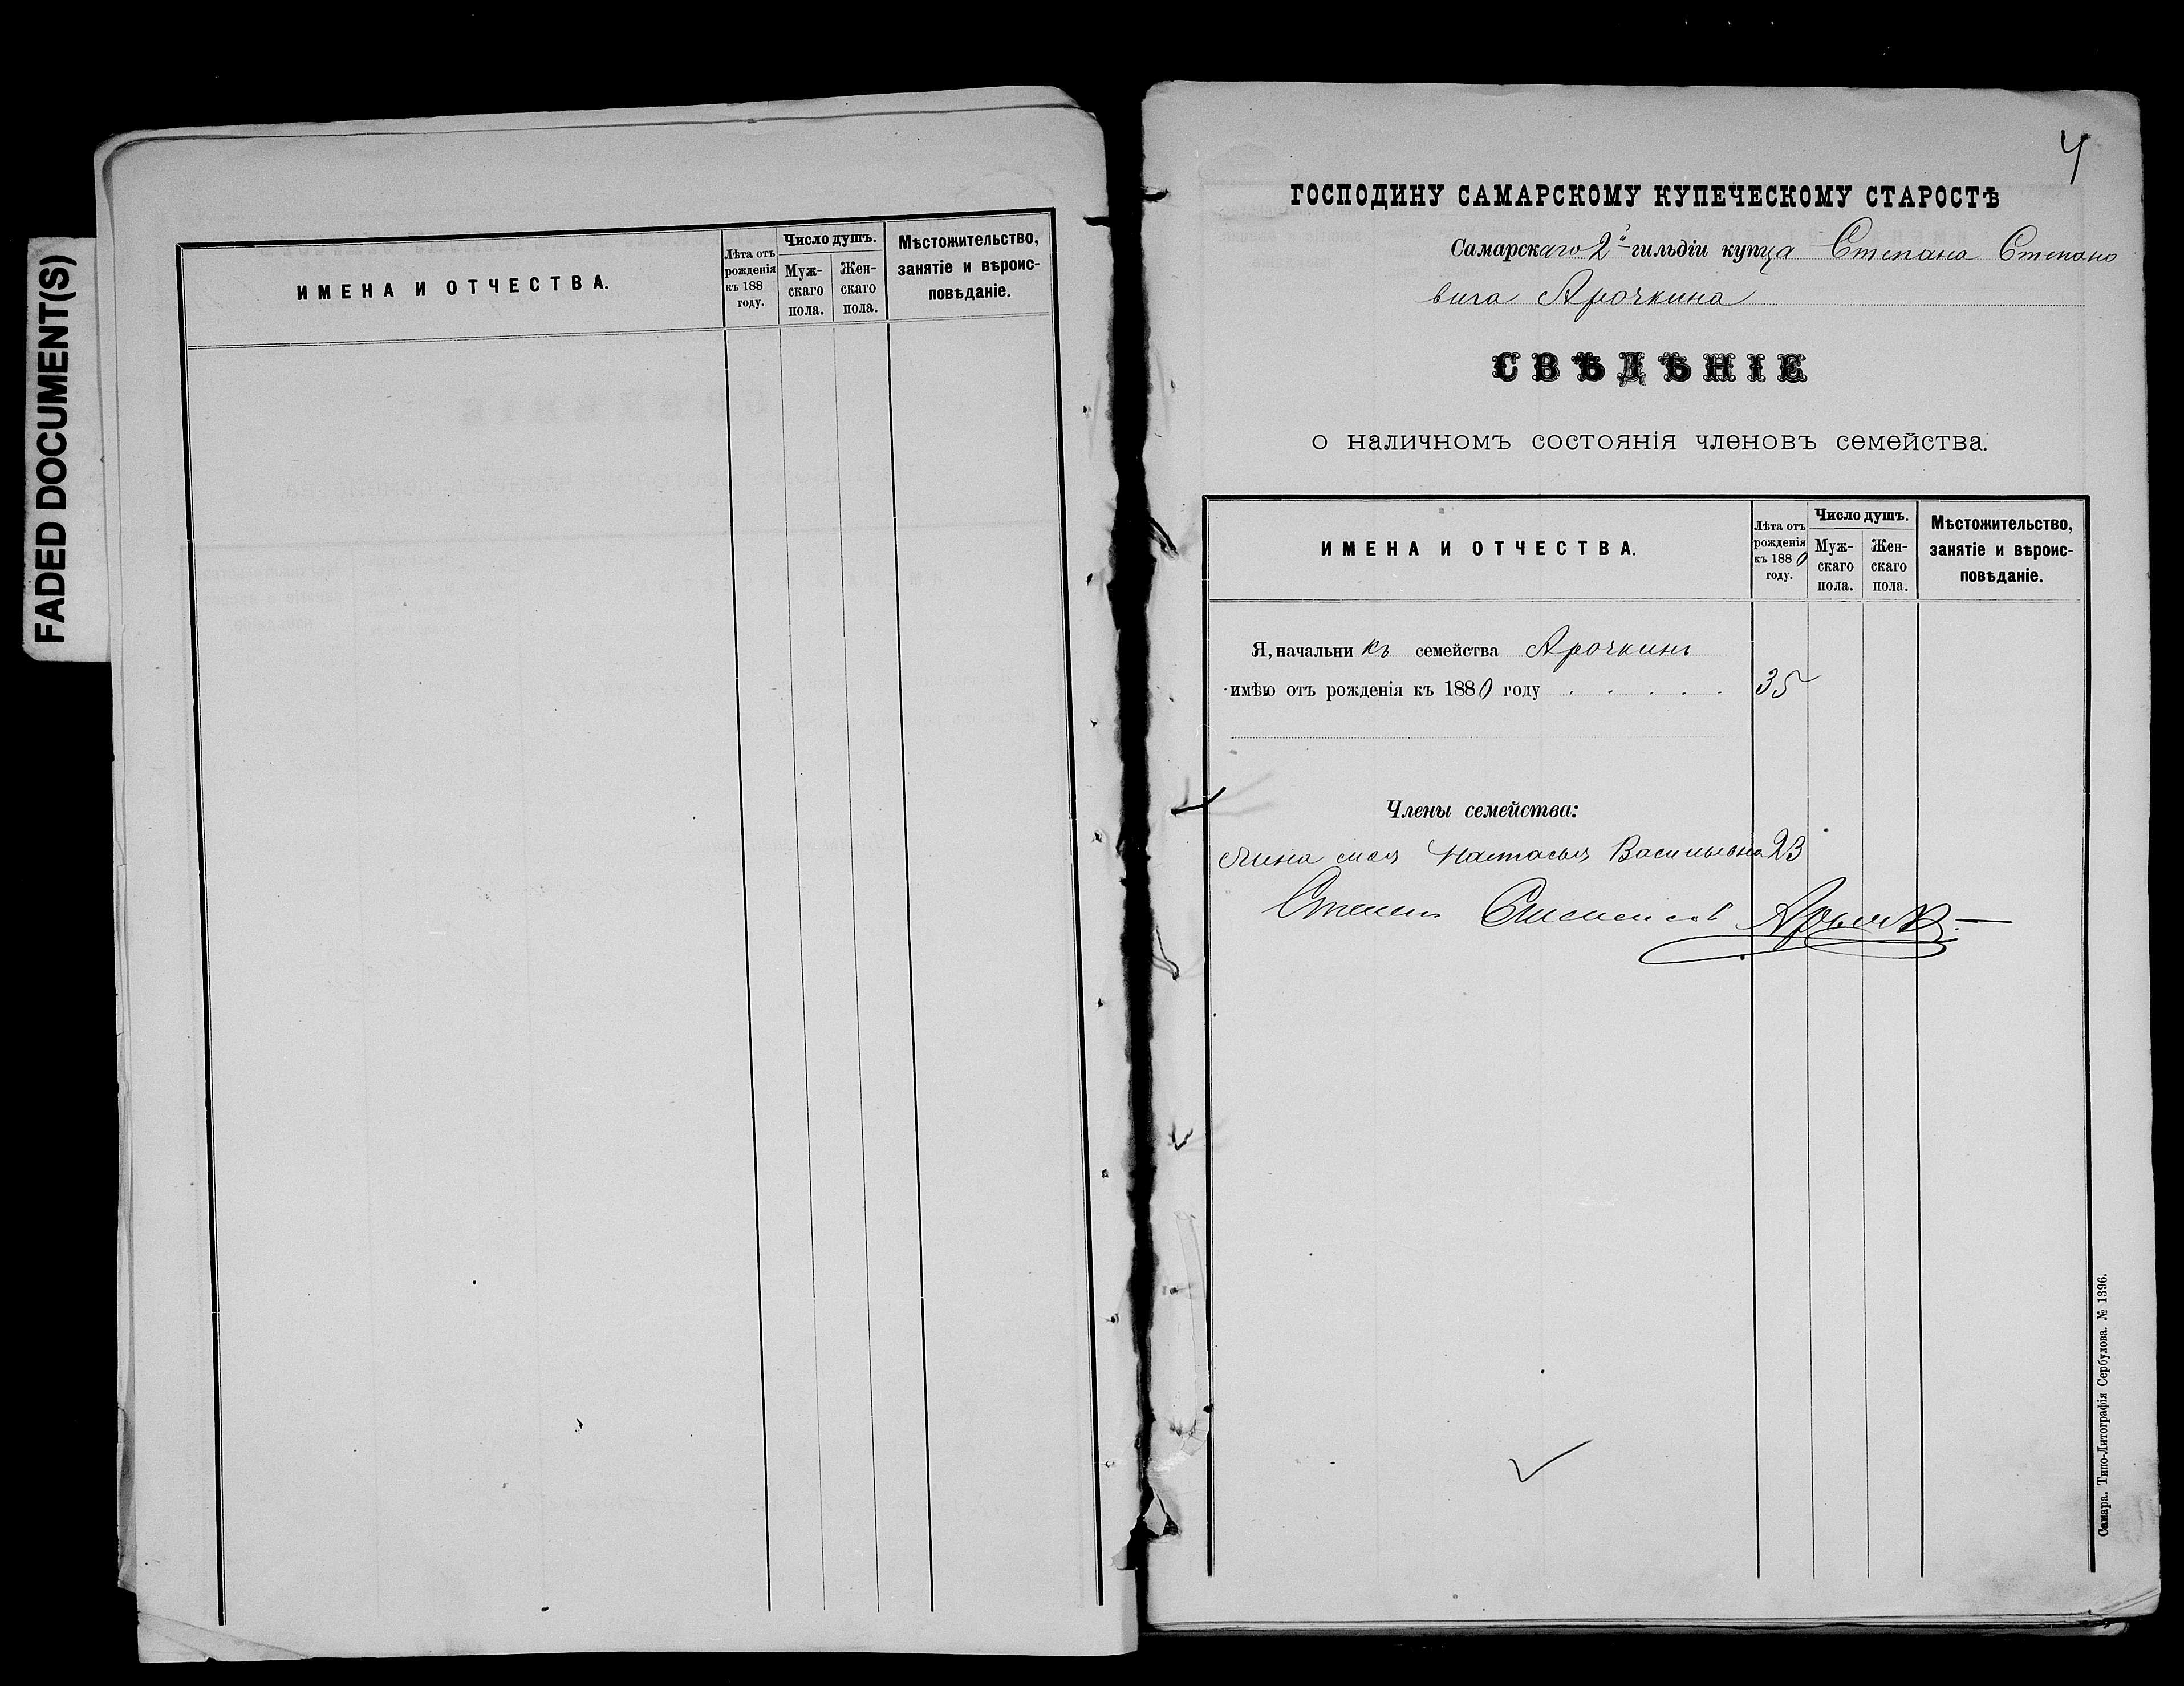 FADED DOCUMENT(S)
ИМЕНА И ОТЧЕСТВА.
Лѣта отъ
рожденія
къ 188
году.
Число душъ.
Муж-
скаго
пола.
Жен-
скаго
пола.
Мѣстожительство,
занятіе и вѣроис-
повѣданіе.
4
ГОСПОДИНУ САМАРСКОМУ КУПЕЧЕСКОМУ СТАРОСТѢ
Самарскаго 2й гильдіи купца Степана Степано
вича Арочкина
СВѢДѢНІЕ
о наличномъ состоянія членовъ семейства.
ИМЕНА И ОТЧЕСТВА.
Лѣта отъ
рожденія
къ 1880
году.
Число душъ.
Муж-
скаго
пола.
Жен-
скаго
пола.
Мѣстожительство,
занятіе и вѣроис-
повѣданіе.
Я, начальникъ семейства Арочкинъ
имѣю отъ рожденія къ 1880 году . . . . . 35
Члены семейства:
моя Настасья Васильевна 23
Степанъ Степановъ
Самара. Типо-Литографія Сербулова. № 1396.